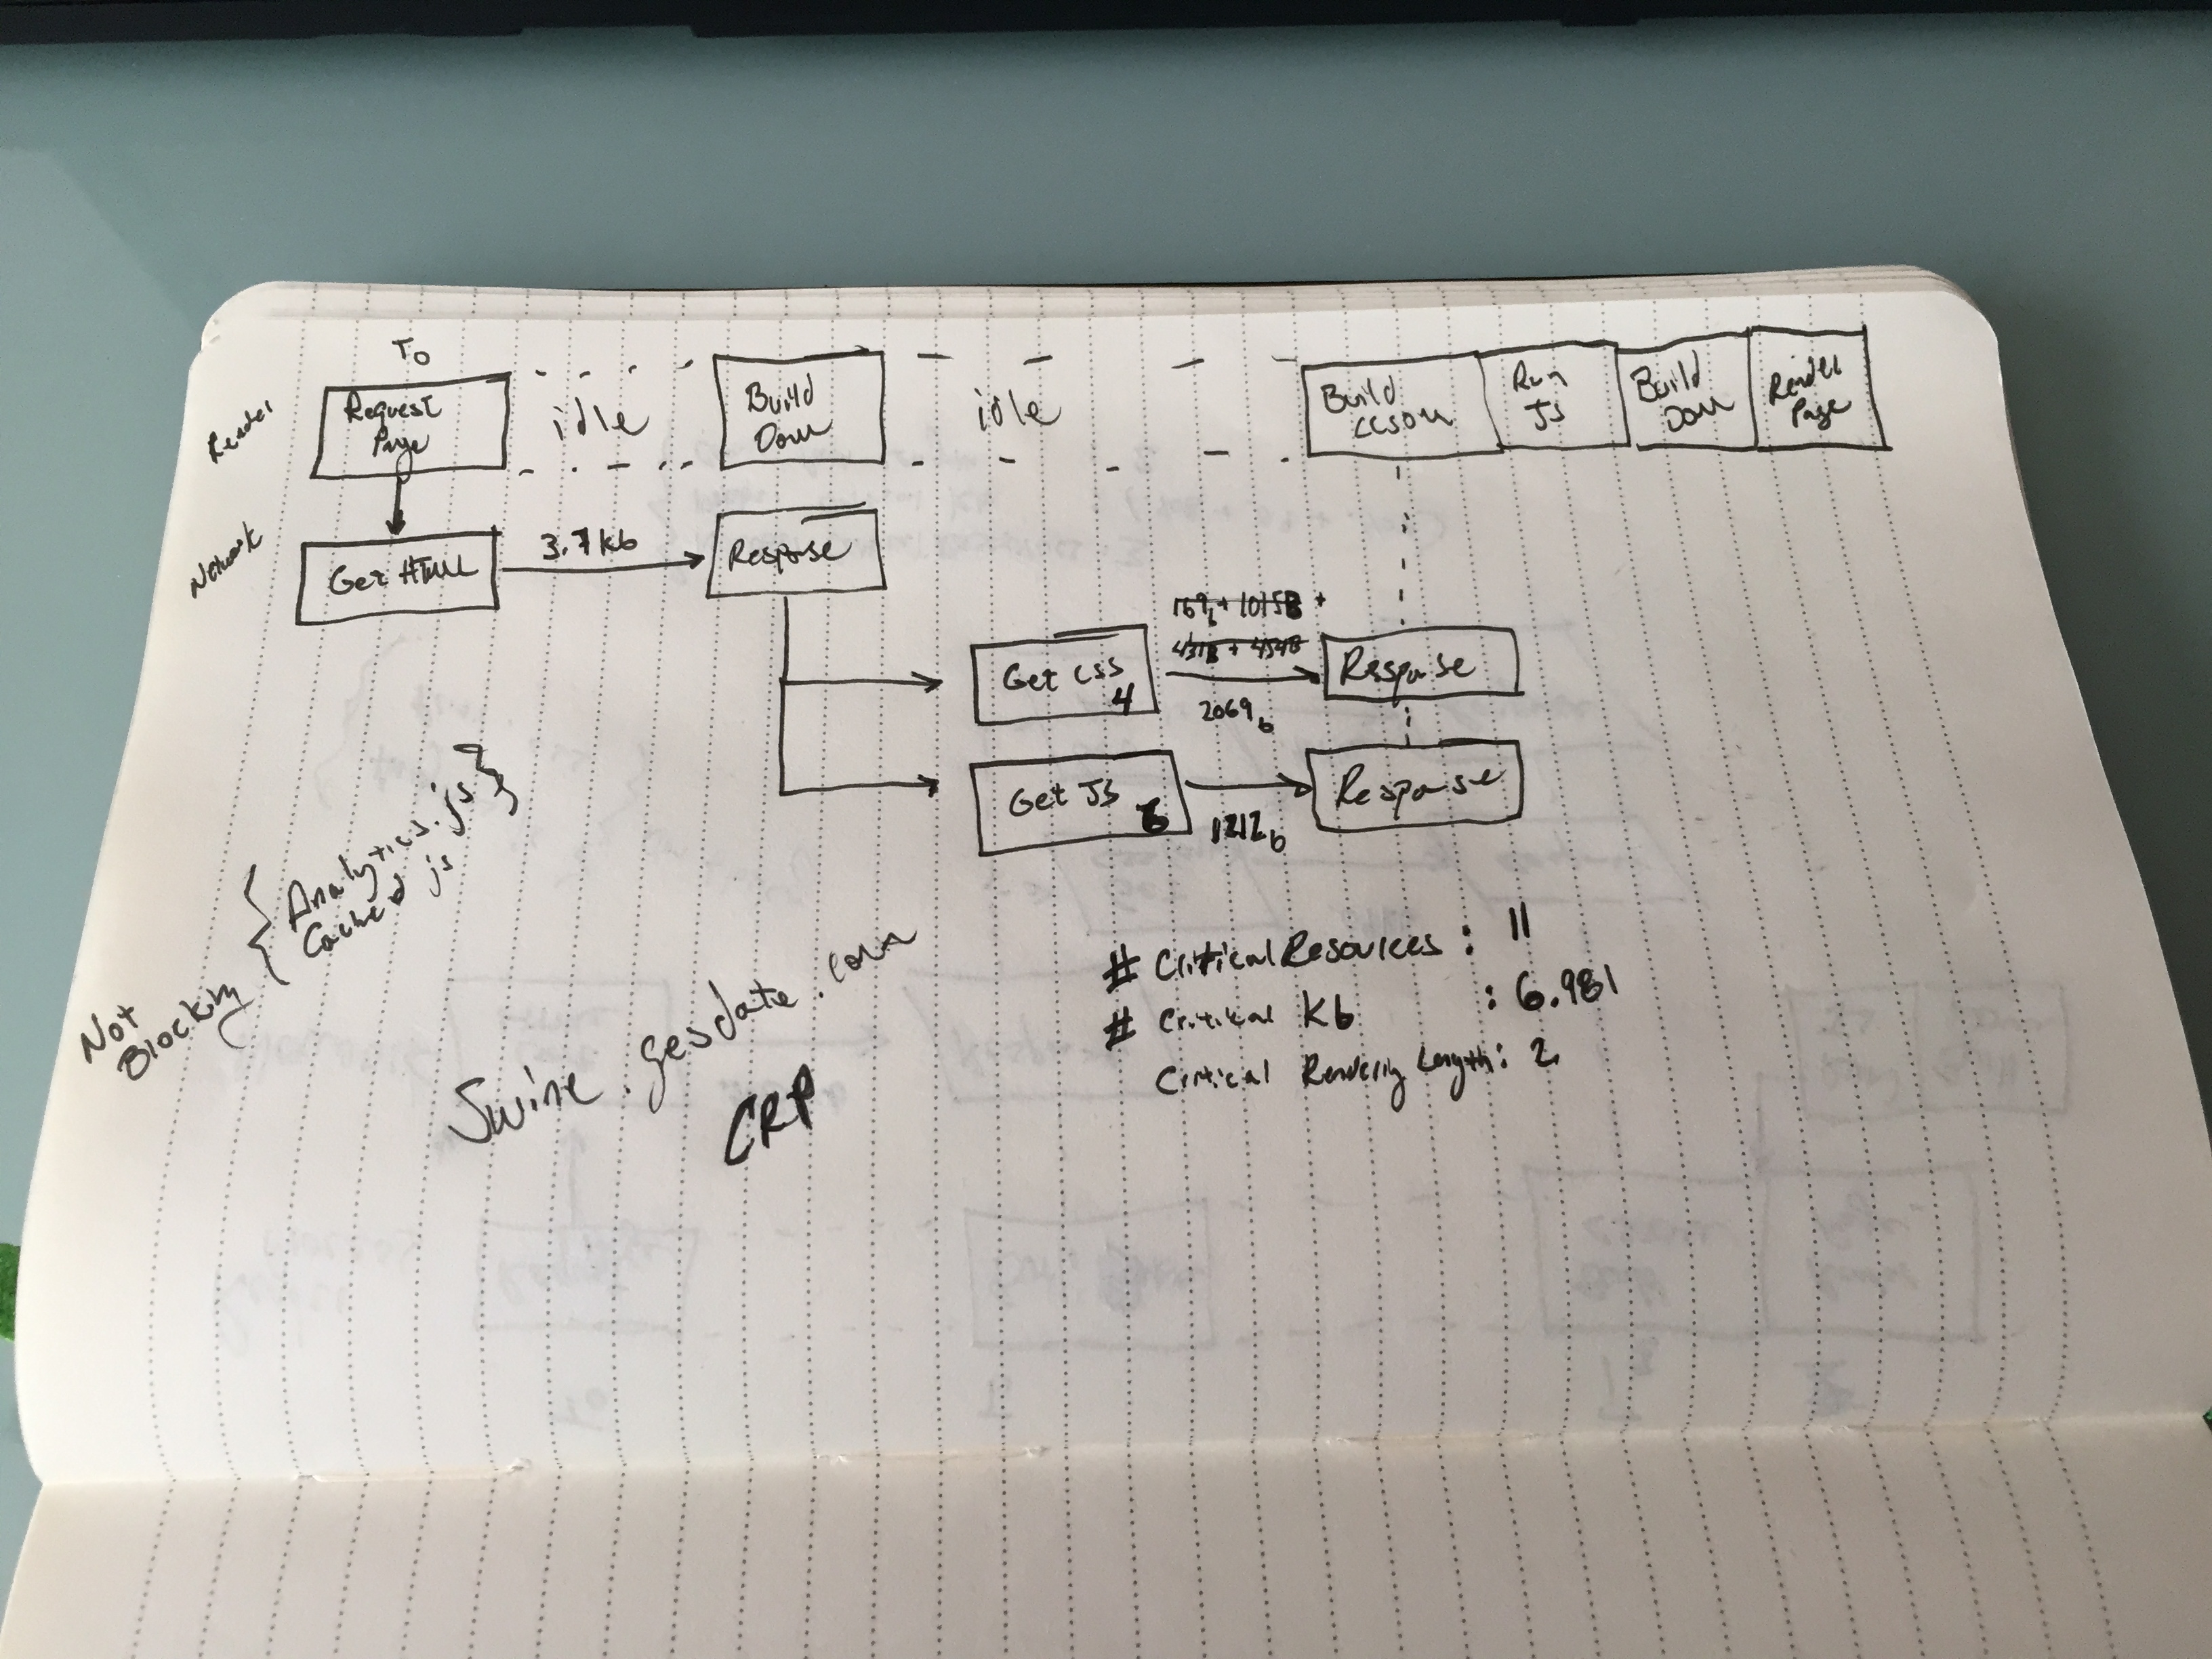 To
Render
Request
Page
idle
Build
Dom
idle
Build
CCSOM
Run
JS
Build
Dom
Render
Page
Network
Get HTML
3.7 kb
Response
Get CSS
4
169b + 1015B +
431B + 454B
2069b
Response
Get JS
6
1212b
Response
Not
Blocking
Analytics.js
Cached js
Swine.gesdate.com
CRP
# Critical Resources : 11
# Critical Kb : 6.981
Critical Rendering Length: 2